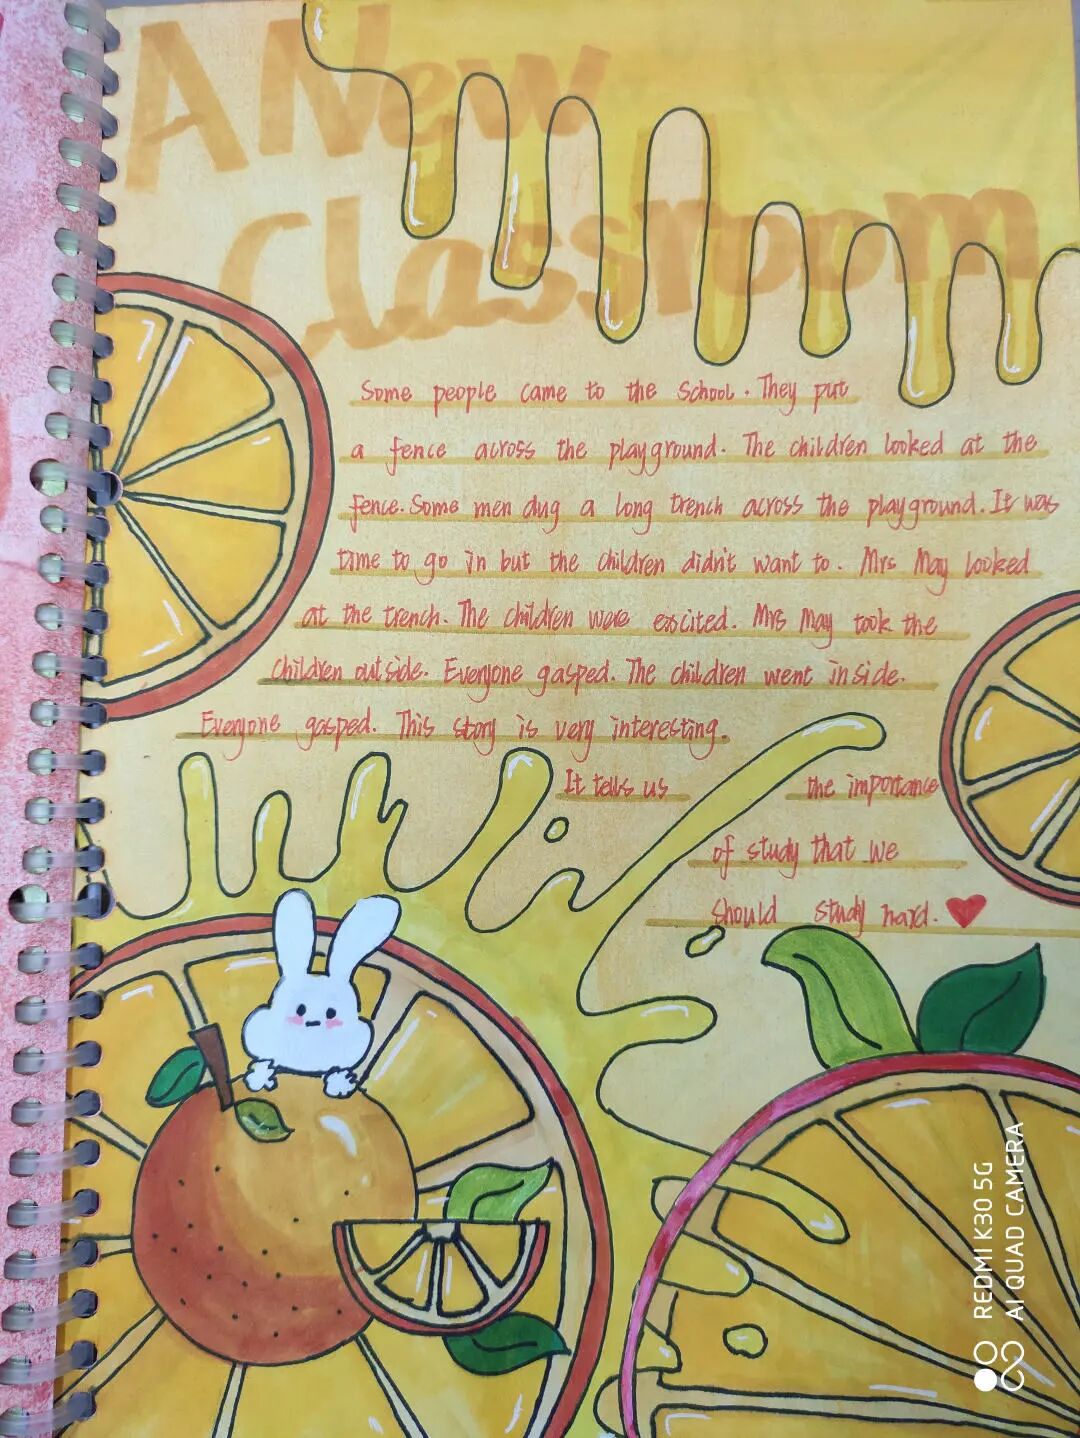 A New
Classroom
Some people came to the School. They put
a fence across the playground. The children looked at the
fence. Some men dug a long trench across the playground. It was
time to go in but the children didn't want to. Mrs May looked
at the trench. The children were excited. Mrs May took the
children outside. Everyone gasped. The children went inside.
Everyone gasped. This story is very interesting.
It tells us the importance
of study that we
should study hard.
REDMI K30 5G
AI QUAD CAMERA